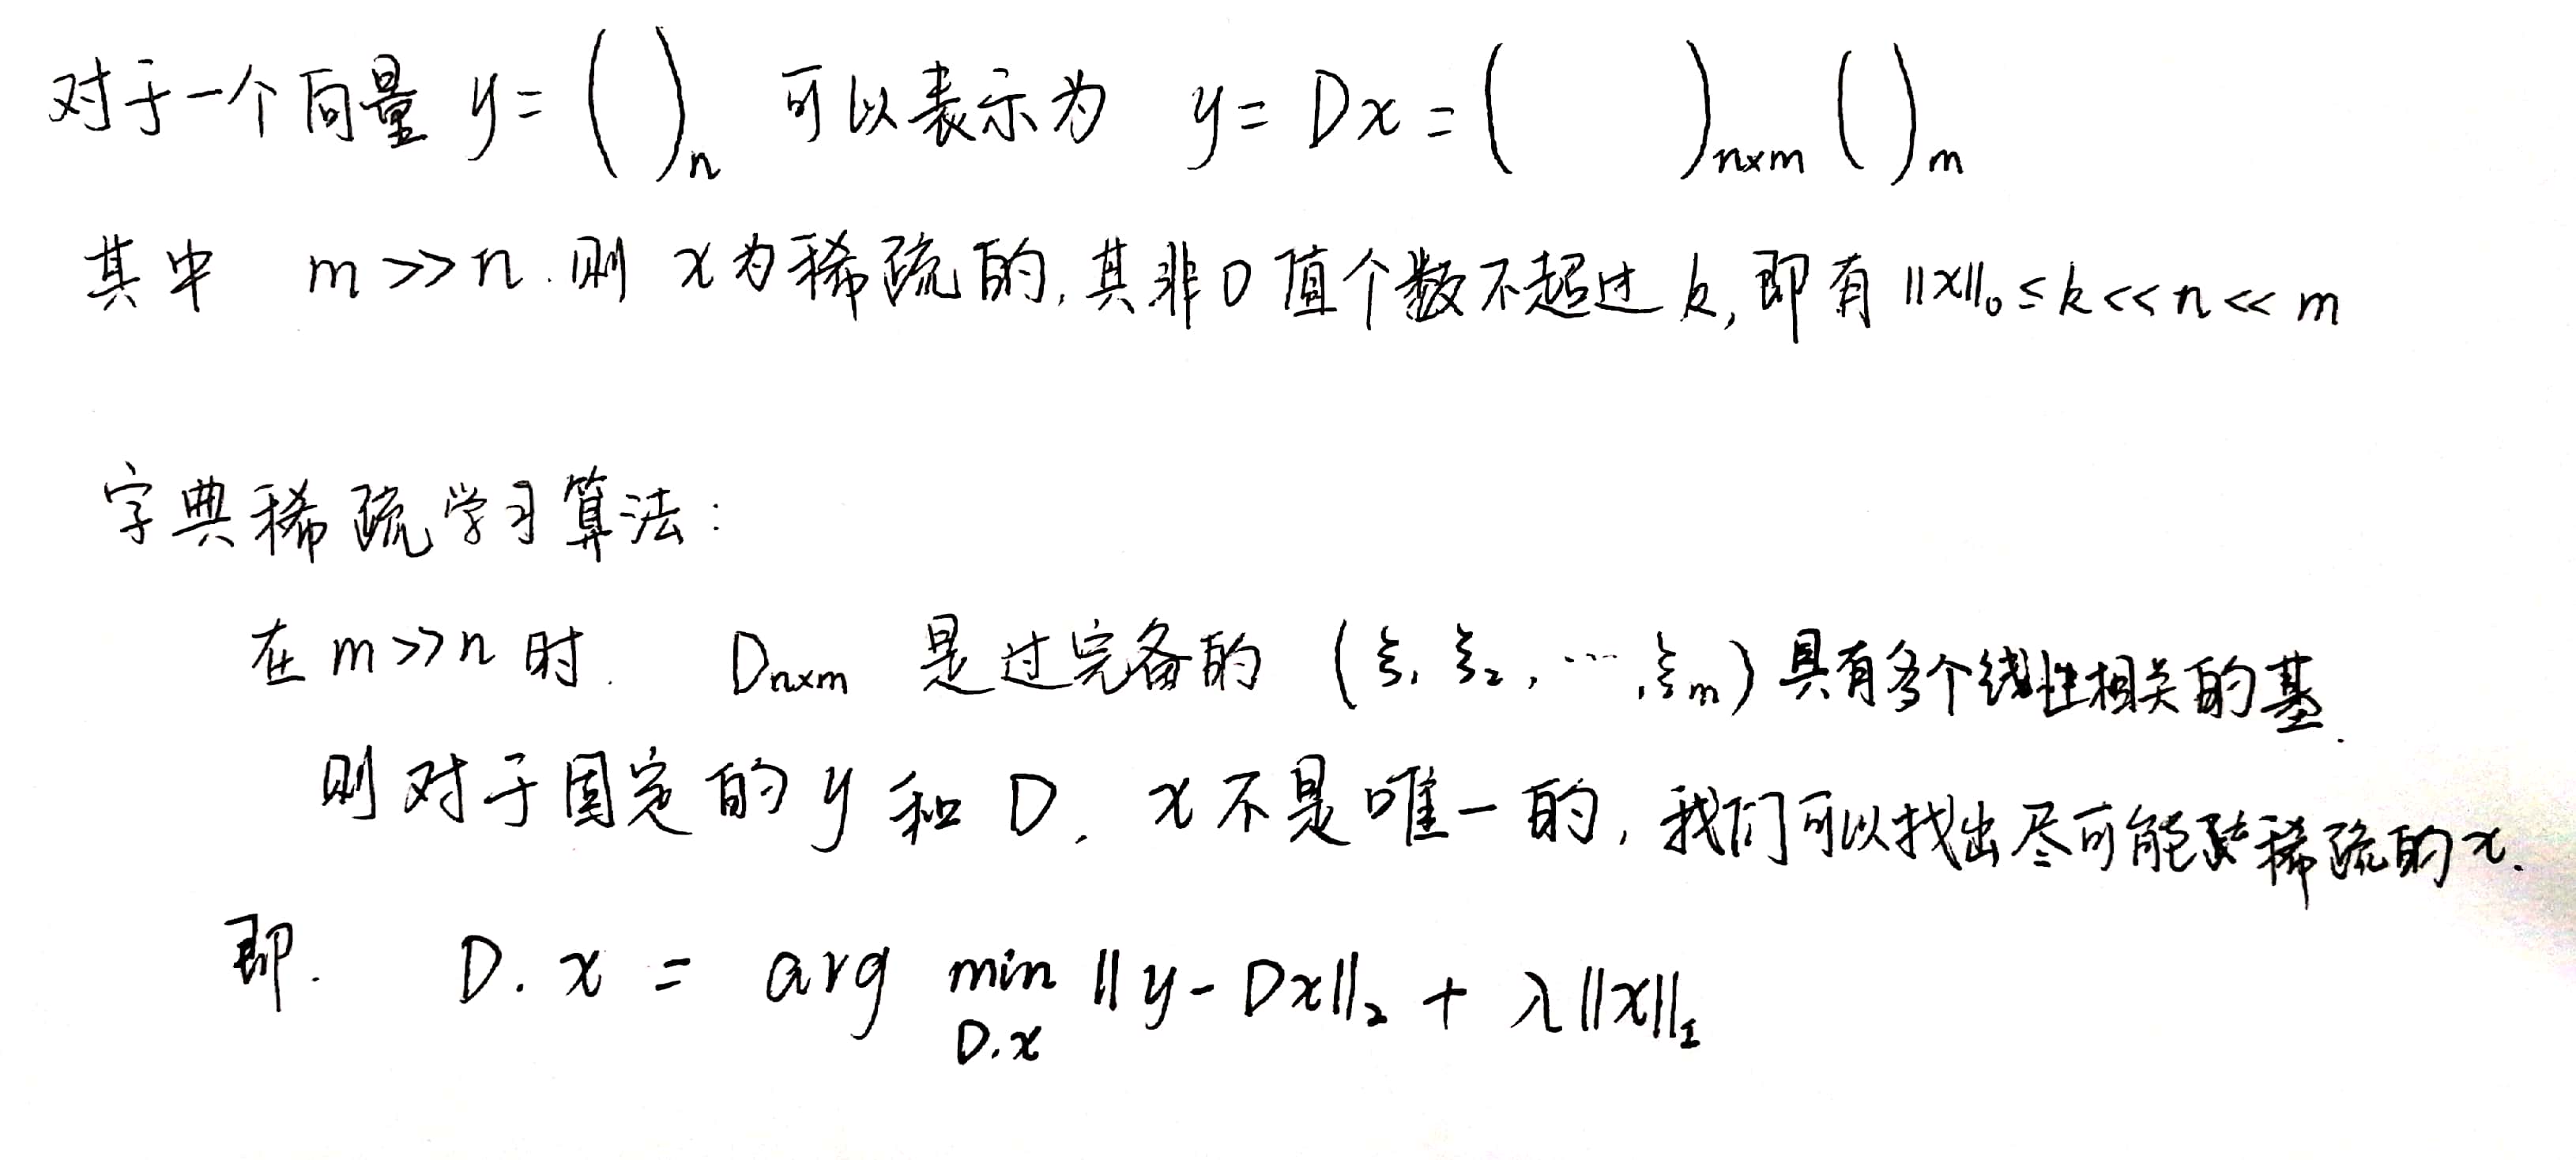 对于一个向量 y = ( )ₙ 可以表示为 y = Dx = ( )ₙₓₘ ( )ₘ
其中 m >> n. 则 x 为稀疏的, 其非0值个数不超过 k, 即有 ||x||₀ ≤ k << n << m
字典稀疏学习算法:
在 m >> n 时. Dₙₓₘ 是过完备的 (ξ₁ ξ₂, ⋯, ξₘ) 具有多个线性相关的基.
则对于固定的 y 和 D, x 不是唯一的, 我们可以找出尽可能稀疏的 x.
即. D. x = arg min ||y - Dx||₂ + λ||x||₁
D.x